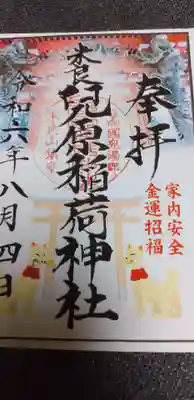 奉拝
家内安全
金運招福
兒原稲荷神社
令和六年八月四日